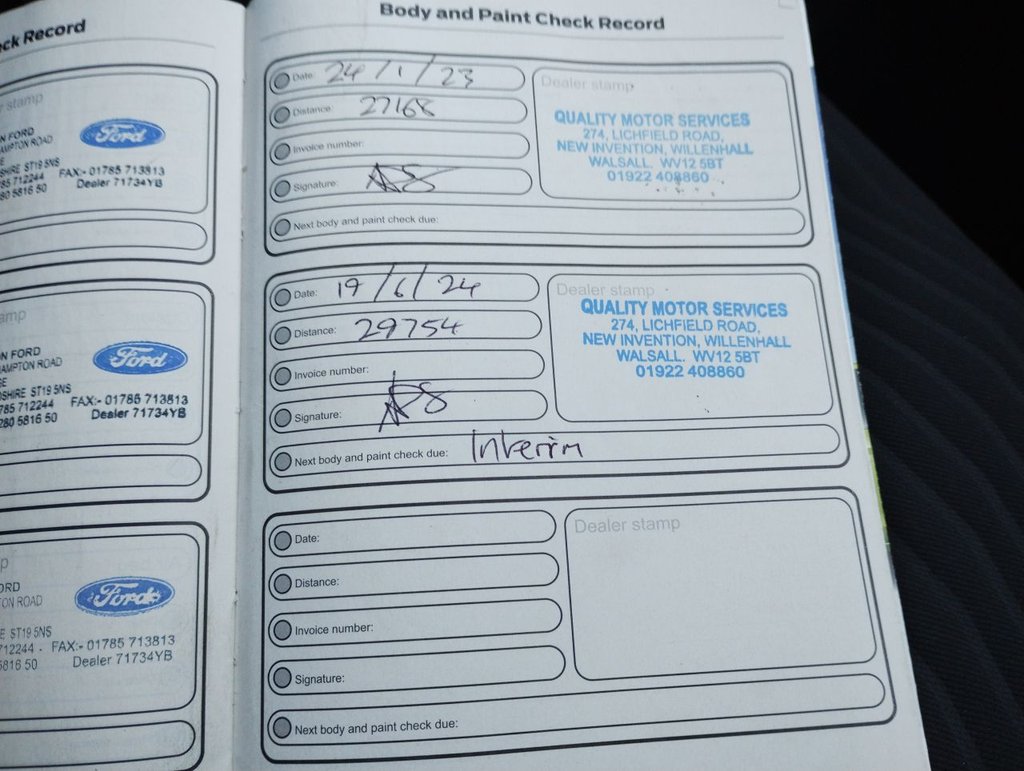 ck Record
r stamp
N FORD
AMPTON ROAD
E
SHIRE ST19 5NS
85 712244 FAX:- 01785 713813
80 5816 50 Dealer 71734YB
Ford
amp
N FORD
AMPTON ROAD
GE
SHIRE ST19 5NS
785 712244 FAX:- 01785 713813
280 5816 50 Dealer 71734YB
Ford
p
ORD
TON ROAD
E ST19 5NS
712244 - FAX:- 01785 713813
5816 50 Dealer 71734YB
Ford
Body and Paint Check Record
Date: 24/1/23
Distance: 27168
Invoice number:
Signature:
Next body and paint check due:
Dealer stamp
QUALITY MOTOR SERVICES
274, LICHFIELD ROAD,
NEW INVENTION, WILLENHALL
WALSALL. WV12 5BT
01922 408860
Date: 19/6/24
Distance: 29754
Invoice number:
Signature:
Next body and paint check due: Interim
Dealer stamp
QUALITY MOTOR SERVICES
274, LICHFIELD ROAD,
NEW INVENTION, WILLENHALL
WALSALL. WV12 5BT
01922 408860
Date:
Distance:
Invoice number:
Signature:
Next body and paint check due:
Dealer stamp